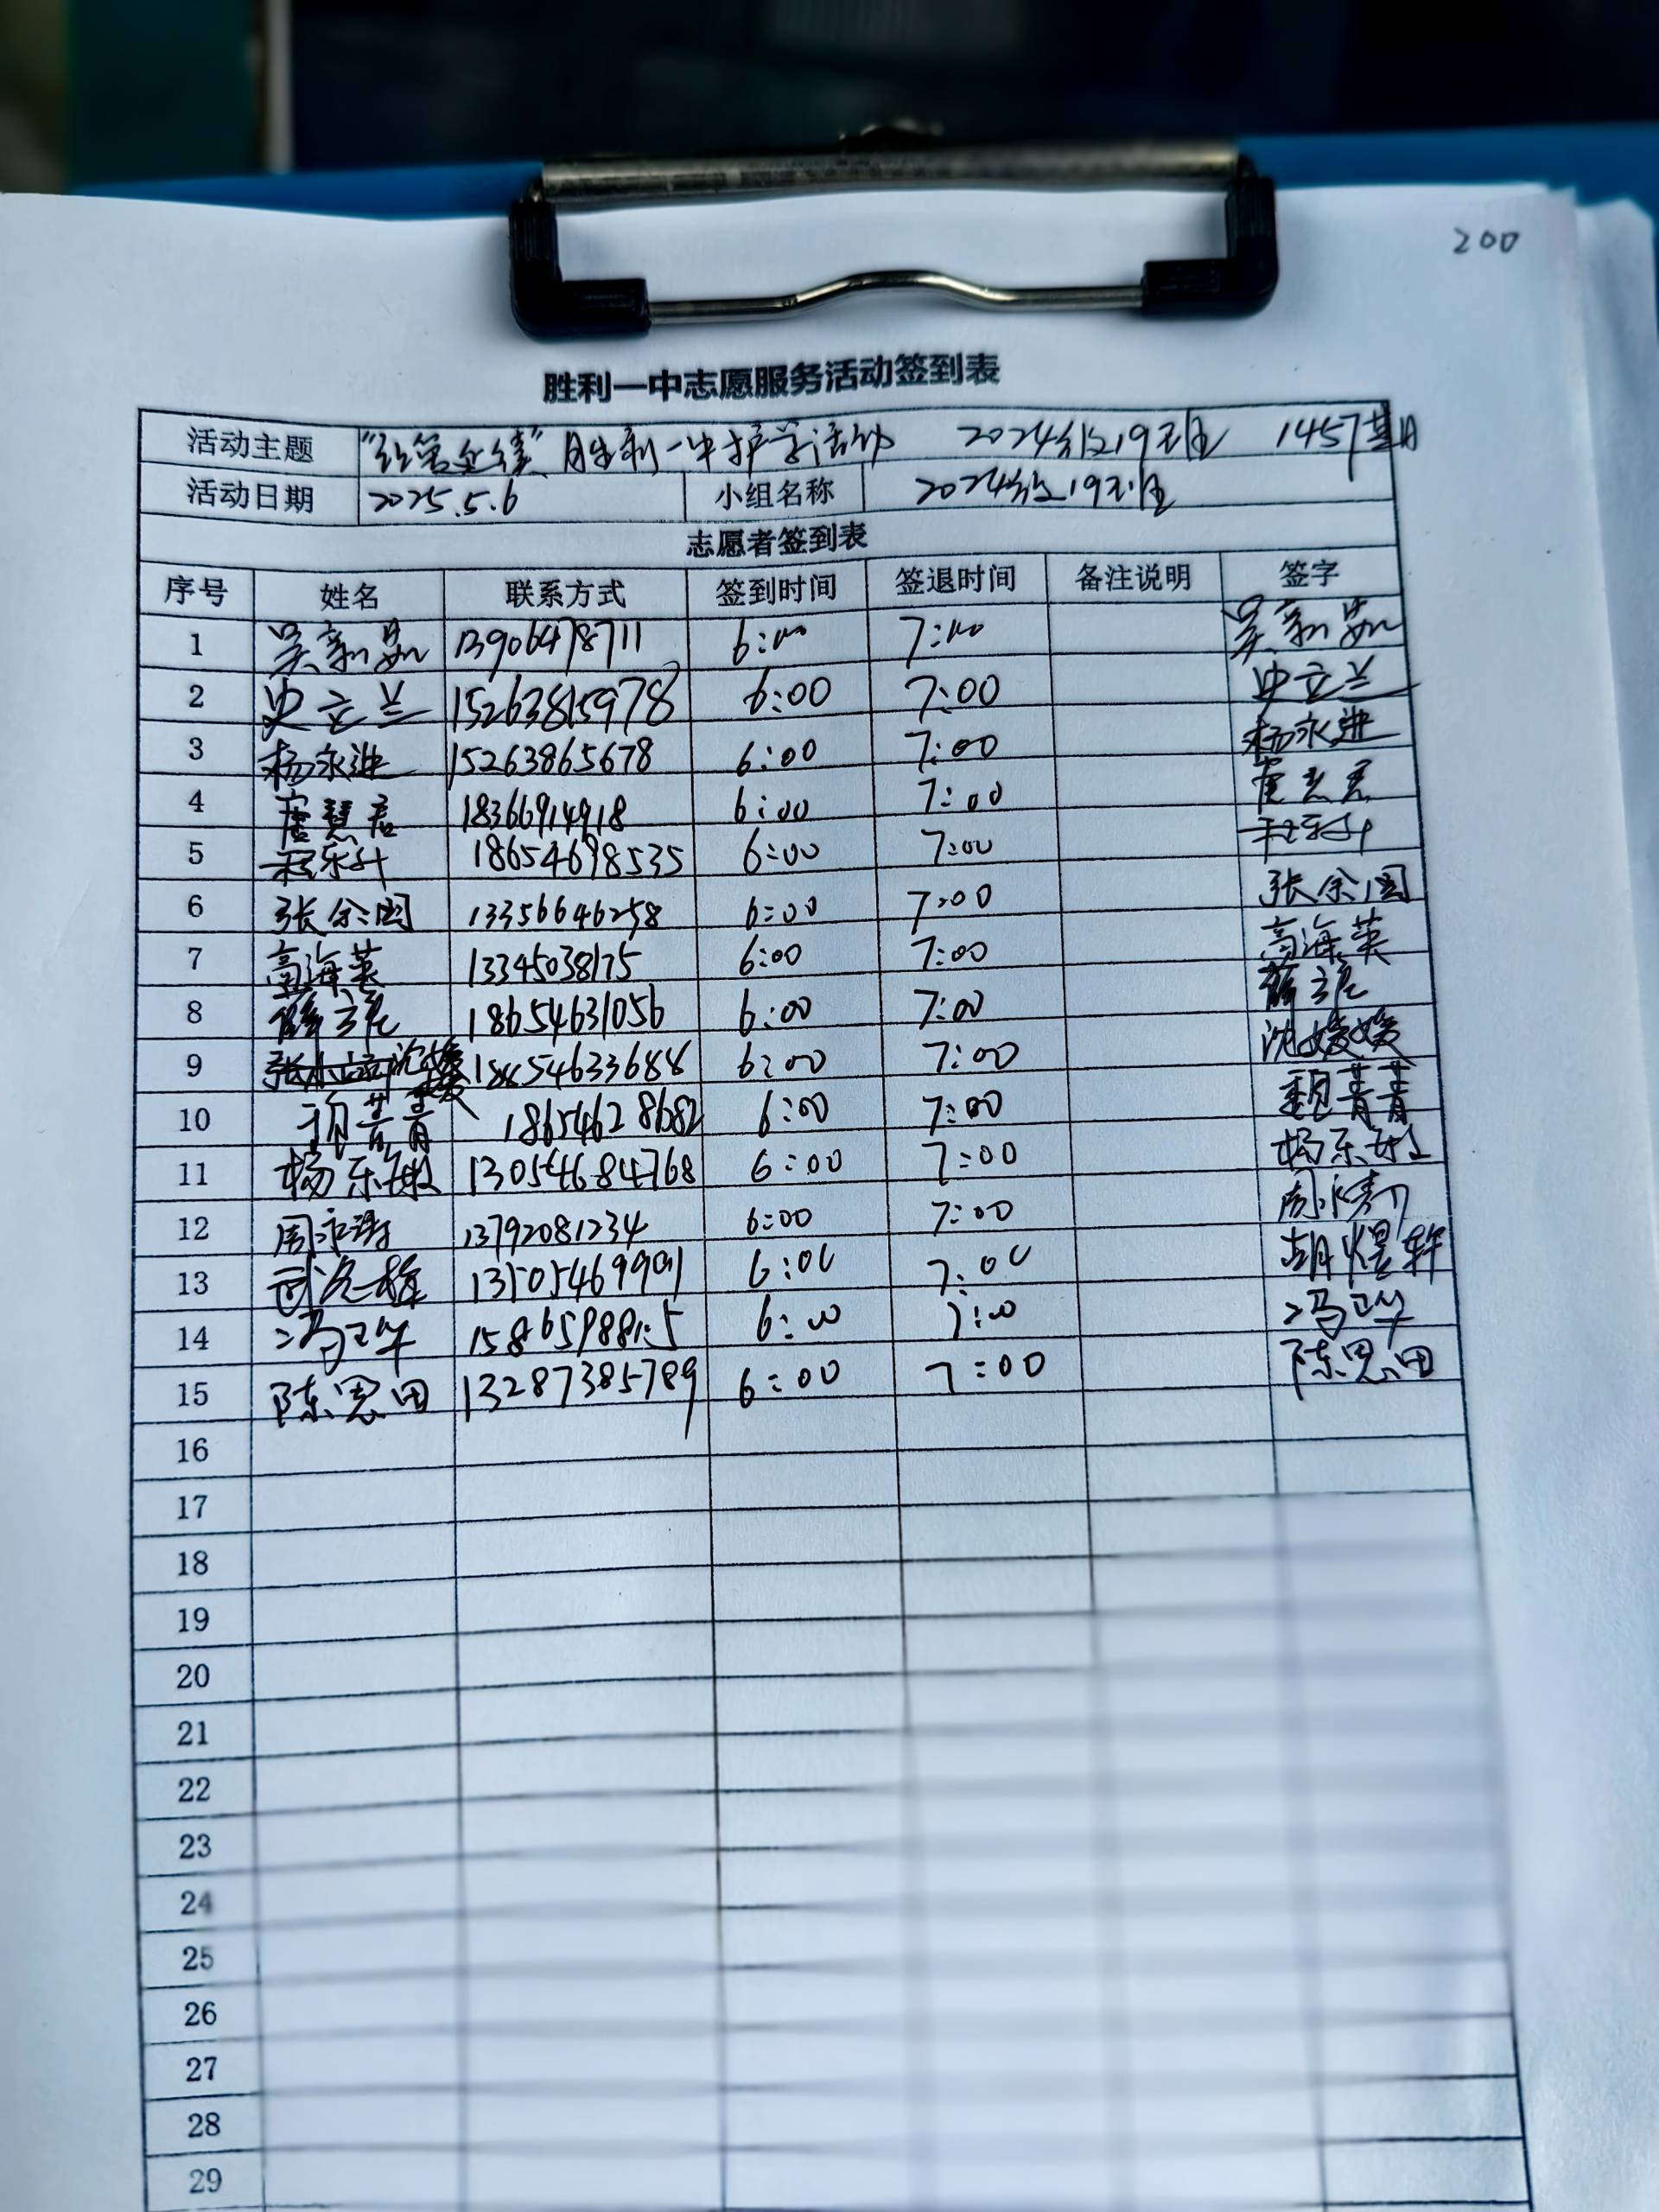 200
胜利一中志愿服务活动签到表
活动主题 胜利一中护学活动 2024级19班 1457期
活动日期 2025.5.6 小组名称 2024级19班
志愿者签到表
序号 姓名 联系方式 签到时间 签退时间 备注说明 签字
1 吴新如 13906478711 6:00 7:00 吴新如
2 史立兰 15263815978 6:00 7:00 史立兰
3 杨永进 15263865678 6:00 7:00 杨永进
4 唐慧君 18366914918 6:00 7:00
5 18654698535 6:00 7:00
6 张余国 13356646258 6:00 7:00 张余国
7 高海英 13345038175 6:00 7:00 高海英
8 薛 18654631056 6:00 7:00 薛
9 6:00 7:00 沈媛媛
10 菁菁 18654628682 6:00 7:00 魏菁菁
11 杨乐敏 13054684768 6:00 7:00 杨乐敏
12 周 13792081234 6:00 7:00 周
13 6:00 7:00 胡煜轩
14 冯卫华 6:00 7:00 冯卫华
15 陈思田 13287385789 6:00 7:00 陈思田
16
17
18
19
20
21
22
23
24
25
26
27
28
29